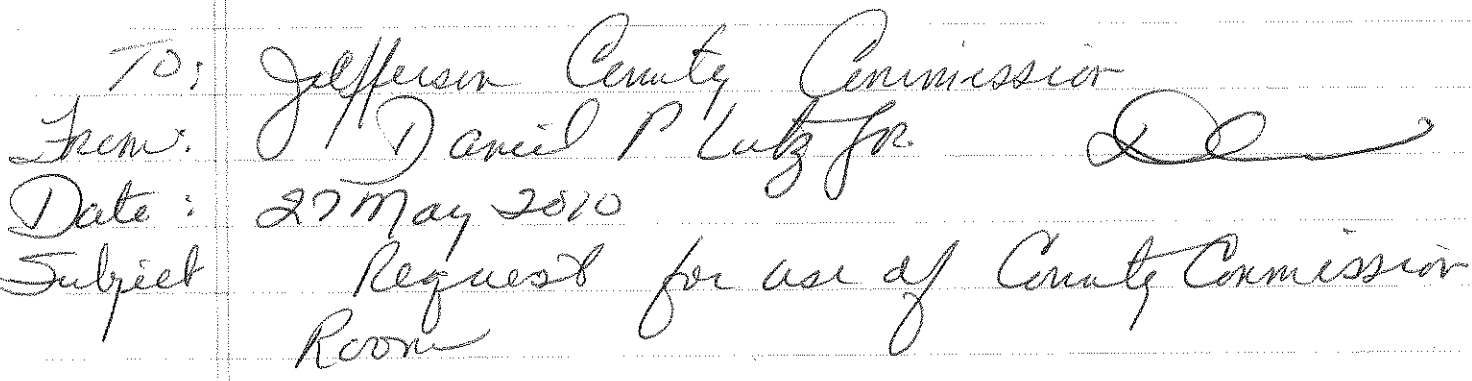 To: Jefferson County Commission
From: Daniel P Lutz Jr.
Date: 27 May 2010
Subject Request for use of County Commission
Room